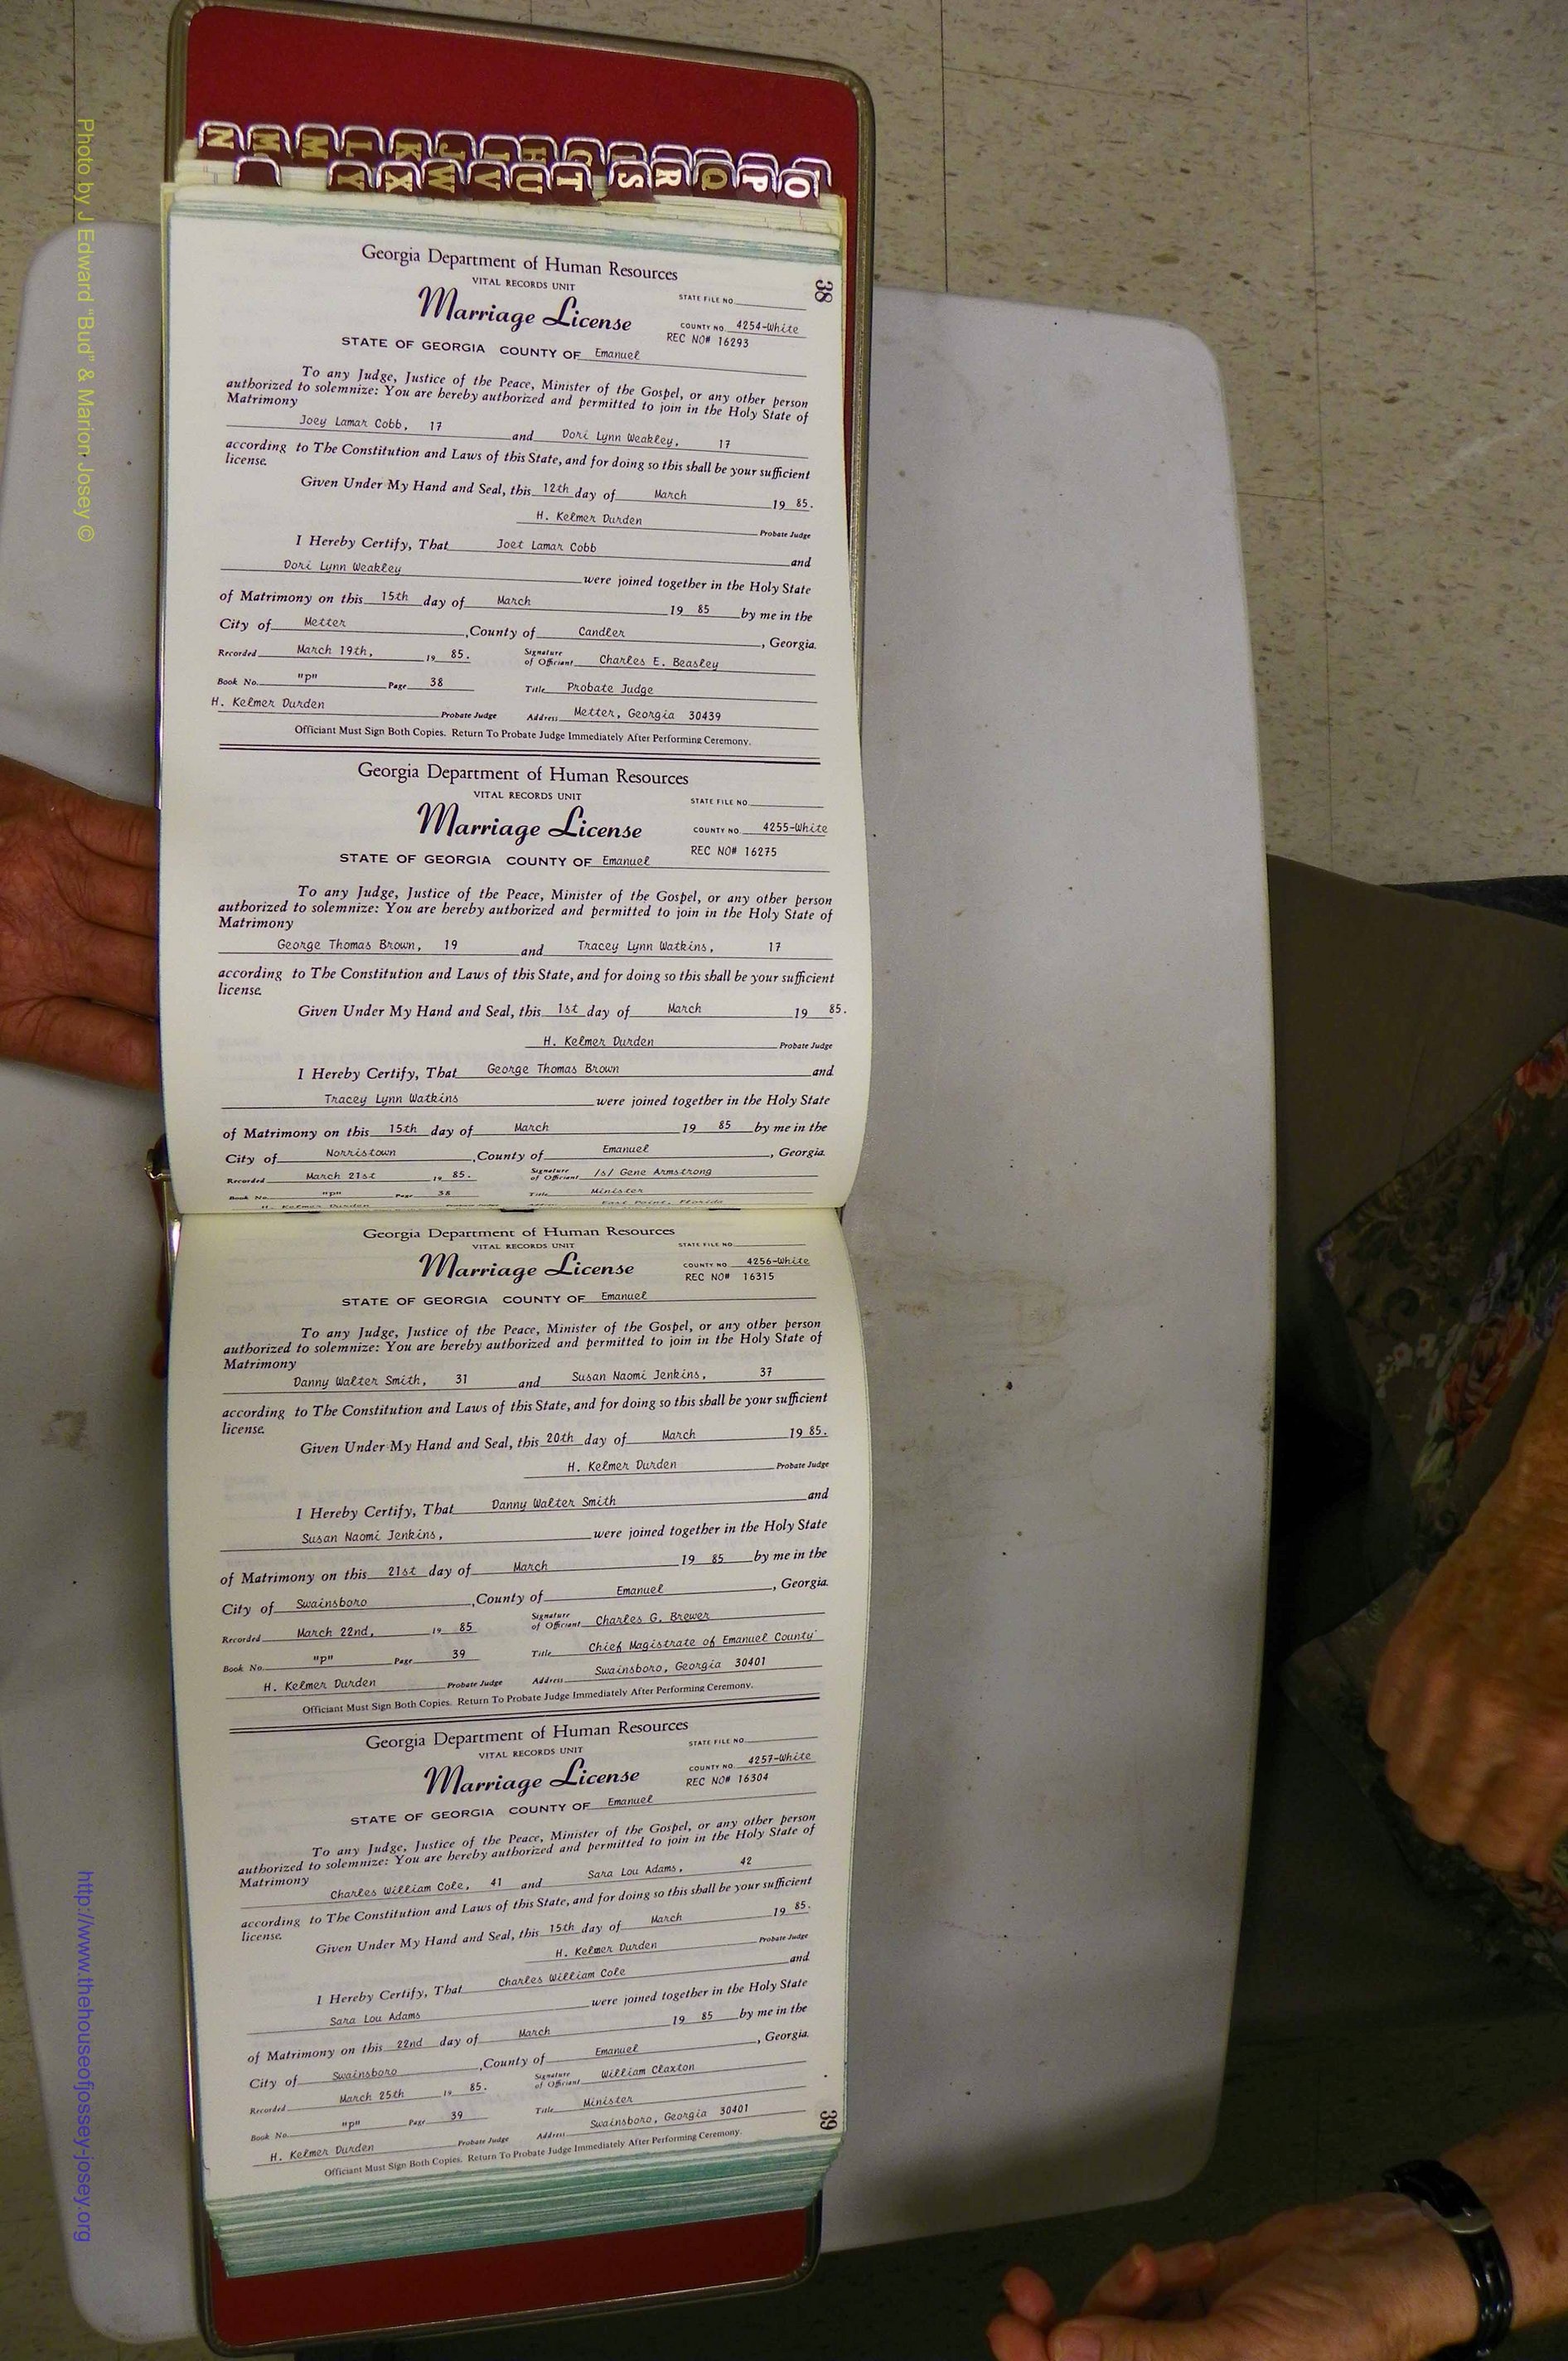 N M M L K J I H G R Q P O
Y X W V U T S
38
Georgia Department of Human Resources
VITAL RECORDS UNIT
STATE FILE NO.
Marriage License
COUNTY NO. 4254-White
REC NO# 16293
STATE OF GEORGIA COUNTY OF Emanuel
To any Judge, Justice of the Peace, Minister of the Gospel, or any other person
authorized to solemnize: You are hereby authorized and permitted to join in the Holy State of
Matrimony
Joey Lamar Cobb, 17 and Dori Lynn Weakley, 17
according to The Constitution and Laws of this State, and for doing so this shall be your sufficient
license.
Given Under My Hand and Seal, this 12th day of March 19 85.
H. Kelmer Durden Probate Judge
I Hereby Certify, That Joet Lamar Cobb and
Dori Lynn Weakley were joined together in the Holy State
of Matrimony on this 15th day of March 19 85 by me in the
City of Metter, County of Candler, Georgia.
Recorded March 19th, 19 85. Signature of Officiant Charles E. Beasley
Book No. "p" Page 38 Title Probate Judge
H. Kelmer Durden Probate Judge Address Metter, Georgia 30439
Officiant Must Sign Both Copies. Return To Probate Judge Immediately After Performing Ceremony.
Georgia Department of Human Resources
VITAL RECORDS UNIT
STATE FILE NO.
Marriage License
COUNTY NO. 4255-White
REC NO# 16275
STATE OF GEORGIA COUNTY OF Emanuel
To any Judge, Justice of the Peace, Minister of the Gospel, or any other person
authorized to solemnize: You are hereby authorized and permitted to join in the Holy State of
Matrimony
George Thomas Brown, 19 and Tracey Lynn Watkins, 17
according to The Constitution and Laws of this State, and for doing so this shall be your sufficient
license.
Given Under My Hand and Seal, this 1st day of March 19 85.
H. Kelmer Durden Probate Judge
I Hereby Certify, That George Thomas Brown and
Tracey Lynn Watkins were joined together in the Holy State
of Matrimony on this 15th day of March 19 85 by me in the
City of Norristown, County of Emanuel, Georgia.
Recorded March 21st 19 85. Signature of Officiant /s/ Gene Armstrong
Book No. "p" Page 38 Title Minister
H. Kelmer Durden Probate Judge Address East Point, Florida
Georgia Department of Human Resources
VITAL RECORDS UNIT
STATE FILE NO.
Marriage License
COUNTY NO. 4256-White
REC NO# 16315
STATE OF GEORGIA COUNTY OF Emanuel
To any Judge, Justice of the Peace, Minister of the Gospel, or any other person
authorized to solemnize: You are hereby authorized and permitted to join in the Holy State of
Matrimony
Danny Walter Smith, 31 and Susan Naomi Jenkins, 37
according to The Constitution and Laws of this State, and for doing so this shall be your sufficient
license.
Given Under My Hand and Seal, this 20th day of March 19 85.
H. Kelmer Durden Probate Judge
I Hereby Certify, That Danny Walter Smith and
Susan Naomi Jenkins, were joined together in the Holy State
of Matrimony on this 21st day of March 19 85 by me in the
City of Swainsboro, County of Emanuel, Georgia.
Recorded March 22nd, 19 85 Signature of Officiant Charles G. Brewer
Book No. "p" Page 39 Title Chief Magistrate of Emanuel County
H. Kelmer Durden Probate Judge Address Swainsboro, Georgia 30401
Officiant Must Sign Both Copies. Return To Probate Judge Immediately After Performing Ceremony.
Georgia Department of Human Resources
VITAL RECORDS UNIT
STATE FILE NO.
Marriage License
COUNTY NO. 4257-White
REC NO# 16304
STATE OF GEORGIA COUNTY OF Emanuel
To any Judge, Justice of the Peace, Minister of the Gospel, or any other person
authorized to solemnize: You are hereby authorized and permitted to join in the Holy State of
Matrimony
Charles William Cole, 41 and Sara Lou Adams, 42
according to The Constitution and Laws of this State, and for doing so this shall be your sufficient
license.
Given Under My Hand and Seal, this 15th day of March 19 85.
H. Kelmer Durden Probate Judge
I Hereby Certify, That Charles William Cole and
Sara Lou Adams were joined together in the Holy State
of Matrimony on this 22nd day of March 19 85 by me in the
City of Swainsboro, County of Emanuel, Georgia.
Recorded March 25th 19 85. Signature of Officiant William Claxton
Book No. "p" Page 39 Title Minister
H. Kelmer Durden Probate Judge Address Swainsboro, Georgia 30401
Officiant Must Sign Both Copies. Return To Probate Judge Immediately After Performing Ceremony.
39
Photo by J Edward "Bud" & Marion Josey ©
http://www.thehouseofjossey-josey.org